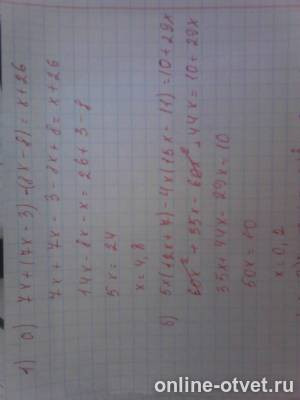 1) а) 7x+(7x-3)-(8x-8)=x+26
7x+7x-3-8x+8=x+26
14x-8x-x=26+3-8
5x=24
x=4,8
б) 5x(12x+7)-4x(15x-11)=10+29x
60x²+35x-60x²+44x=10+29x
35x+44x-29x=10
50x=10
x=0,2
online-otvet.ru